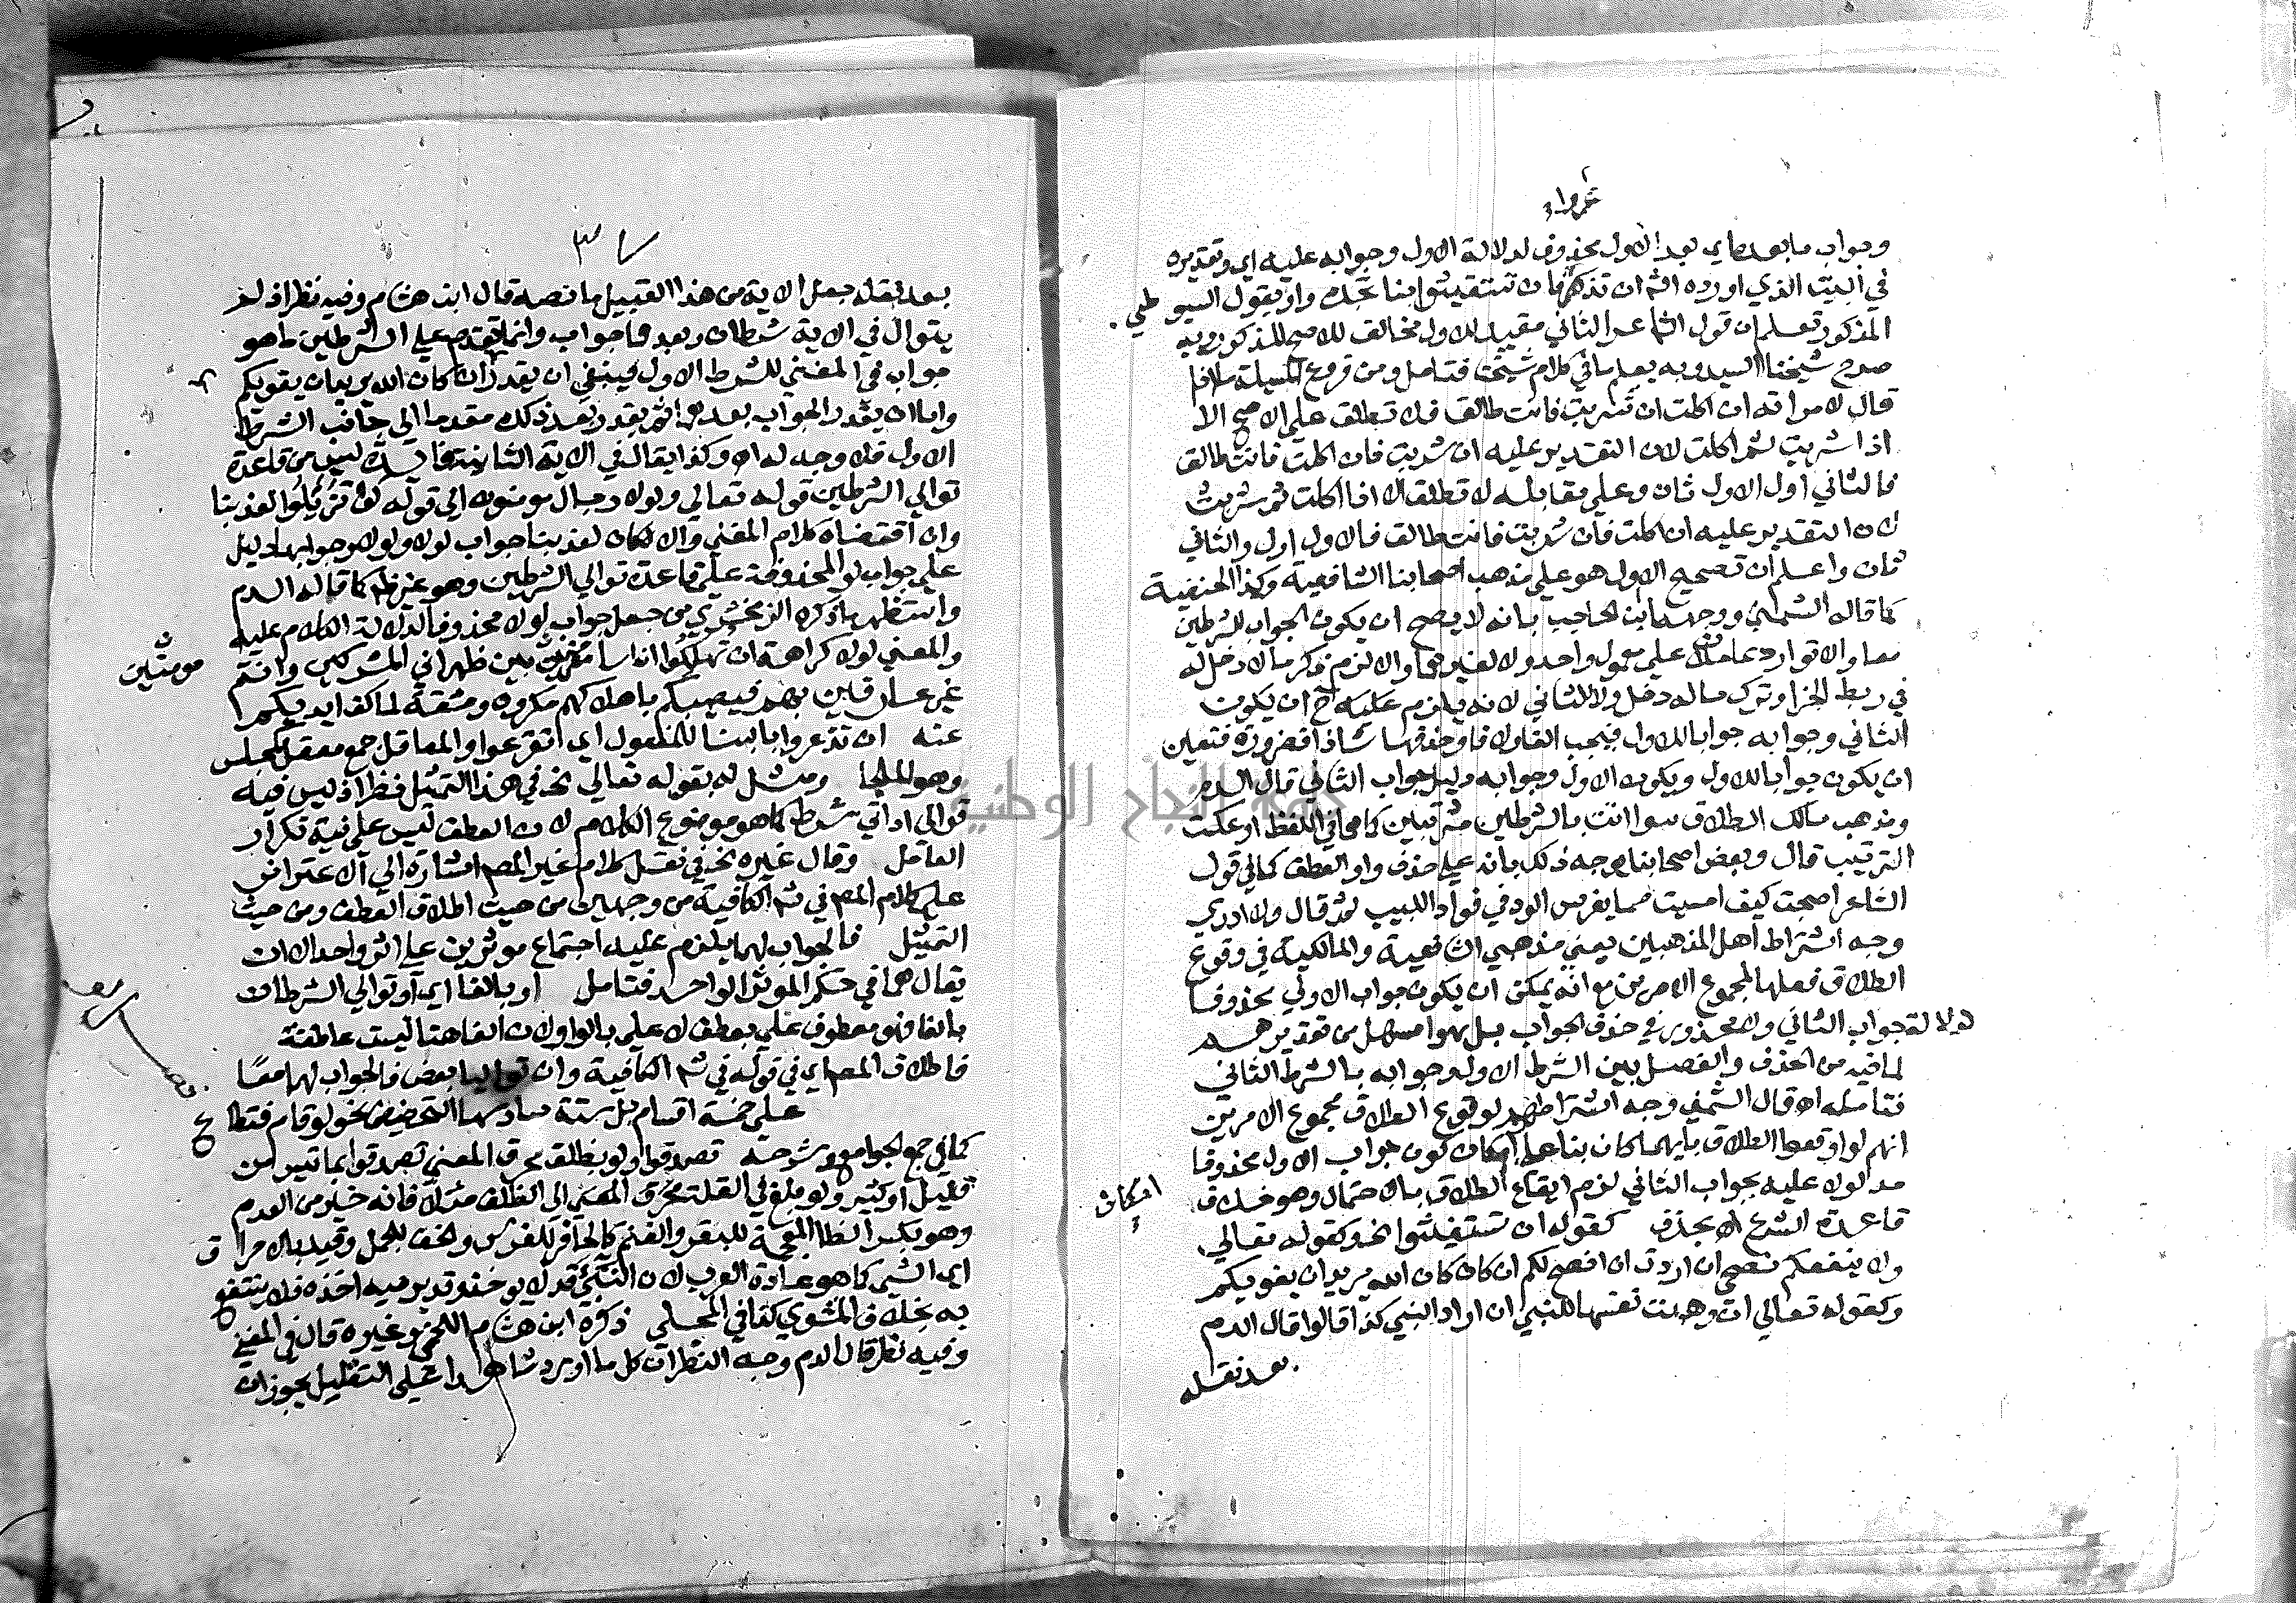 وجواب ما بعده اي بعد الاول محذوف لدلالة الاول وجوابه عليه اي وتقديره
في البيت الذي اورده الشم ان تذعروا فان تستغيثوا بنا تجدوا ويقول السيوطي
المذكور تعلم ان قول الشاعر الثاني مقيد للاول مخالف للاصح المذكور وبه
صرح شيخنا السيد وبه يعلم ما في كلام شيخنا فتامل ومن فروع المسيلة ما اذا
قال لامراته ان اكلت ان شربت فانت طالق فلا تطلق على الاصح الا
اذا شربت ثم اكلت لان التقدير عليه ان شربت فان اكلت فانت طالق
فالثاني اول الاول ثان وعلى مقابله لا تطلق الا اذا اكلت ثم شربت
لان التقدير عليه ان اكلت فان شربت فانت طالق فالاول اول والثاني
ثان واعلم ان تصحيح الاول هو على مذهب اصحابنا الشافعية وكذا الحنفية
كما قاله الشمني ووجهه ابن الحاجب بانه لا يصح ان يكون الجواب للشرطين
معا والا توارد عاملان على معمول واحد ولا لغيرهما والا لزم ذكر ما لا دخل له
في ربط الجزا وترك ما له دخل ولا للثاني لانه يلزم عليه ح ان يكون
الثاني وجوابه جوابا للاول فيجب الفا ولا فا وحذفها شاذ او ضرورة فتعين
ان يكون جوابا للاول ويكون الاول وجوابه دليل جواب الثاني قال الدم
ومذهب مالك الطلاق سوا اتت بالشرطين مترتبين كما هما في اللفظ او عكست
الترتيب قال وبعض اصحابنا يوجه ذلك بانه على حذف واو العطف كما في قول
الشاعر اصبحت كيف امسيت مما يغرس الود في فواد اللبيب ثم قال ولا ادري
وجه اشتراط اهل المذهبين يعني مذهبي الشافعية والمالكية في وقوع
الطلاق فعلها لمجموع الامرين مع انه يمكن ان يكون جواب الاولى محذوفا
لدلالة جواب الثاني ولا محذور في حذف الجواب بل هو اسهل من تقديرهم
لما فيه من الحذف والفصل بين الشرط الاول وجوابه بالشرط الثاني
فتامله اه قال الشمني وجه اشتراطهم لوقوع الطلاق مجموع الامرين
انهم لو اوقعوا الطلاق بايهما كان بنا على امكان كون جواب الاول محذوفا
امكان
مدلولا عليه بجواب الثاني لزم ايقاع الطلاق بالاحتمال وهو خلاف
قاعدة الشرع اه بحذف كقوله ان تستغيثوا الخ وكقوله تعالى
ولا ينفعكم نصحي ان اردت ان انصح لكم ان كان الله يريد ان يغويكم
وكقوله تعالى ان وهبت نفسها للنبي ان اراد النبي كذا قالوا قال الدم
بعد نقله
٣
بعد نقله جعل الاية من هذا القبيل ما نصه قال ابن هشام وفيه نظر اذ لم
يتوال في الاية شرطان وبعدهما جواب وانما تقدم على الشرطين ما هو
جواب في المعنى للشرط الاول فينبغي ان يقدر ان كان الله يريد ان يغويكم
واما ان يقدر الجواب بعدهما ثم يقدر بعد ذلك مقدما الى جانب الشرط
الاول فلا وجه له اه وكذا يقال في الاية الثانية فايدة ليس من قاعدة
توالي الشرطين قوله تعالى ولولا رجال مومنون الى قوله لو تزيلوا لعذبنا
وان اقتضاه كلام المغني والا لكان لعذبنا جواب لولا ولولا وجوابها دليل
على جواب لو المحذوف على قاعدة توالي الشرطين وهو غير ظ كما قاله الدم
واستظهر ما ذكره الزمخشري من جعل جواب لولا محذوفا لدلالة الكلام عليه
والمعنى لولا كراهة ان تهلكوا اناسا مومنين بين ظهراني المشركين وانتم
مومنين
غير عارفين بهم فيصيبكم باهلاكهم مكروه ومشقة لما كف ايديكم
عنه ان تذعروا بالبنا للمفعول اي تفزعوا والمعاقل جمع معقل كمجلس
وهو الملجا ومثل له بقوله تعالى الخ في هذا التمثيل نظر اذ ليس فيه
توالي اداتي شرط كما هو موضوع الكلام لان العطف ليس على نية تكرار
العامل وقال غيره الخ في نقل كلام غير المص اشارة الى الاعتراض
على كلام المص في شرح الكافية من وجهين من حيث اطلاق العطف ومن حيث
التمثيل فالجواب لهما يلزم عليه اجتماع موثرين على اثر واحد الا ان
يقال هما في حكم الموثر الواحد فتامل او بالفا اي او توالي الشرطان
بالفا فهو معطوف على بعطف لا على بالواو لان الفا هنا ليست عاطفة
فاطلاق المص اي في قوله في شرح الكافية وان تواليا بعض فالجواب لهما معا
على خمسة اقسام بل ستة سادسها التحضيض نحو لو قام فتطاع
كما في جمع الجوامع وشرحه تصدقوا ولو بظلف محرق المعنى تصدقوا بما تيسر من
قليل او كثير ولو بلغ في القلة محرق المعنى الى الظلف مثلا فانه خير من العدم
وهو بكسر الظا المعجمة للبقر والغنم كالحافر للفرس والخف للجمل وقيد بالاحراق
اي الشي كما هو عادة العرب لان النيئ قد لا يوخذ وقد يرميه اخذه فلا ينتفع
به بخلاف المشوي كذا في المحلي ذكره ابن هشام اللخمي وغيره قال في المغني
وفيه نظر قال الدم وجه النظر ان كل ما اورد شاهدا على التقليل يجوز ان
جامعة النجاح الوطنية